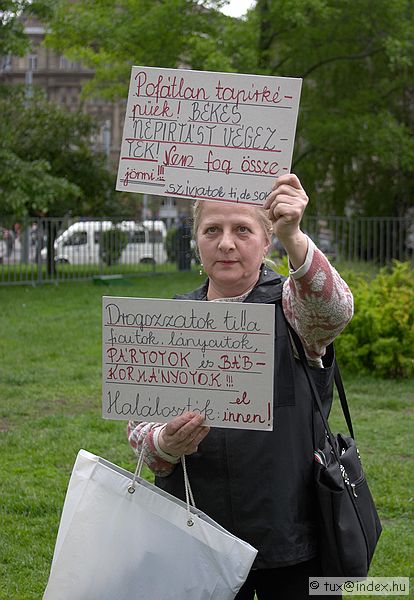 Pofátlan tapírké-
pűek! BÉKÉS
NÉPIRTÁST VÉGEZ-
TEK! Nem fog össze-
jönni!!!
szívjatok ti, de so
Drogozzatok ti!!a
fiaitok, lányaitok,
PÁRTOTOK és BÁB-
KORMÁNYOTOK!!!
el
Halálosztók: innen!
© tux@index.hu